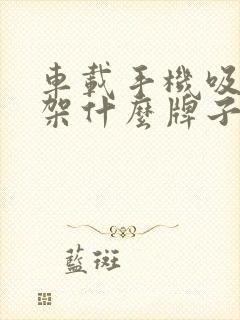 車載手機吸
架什麼牌子
藍斑